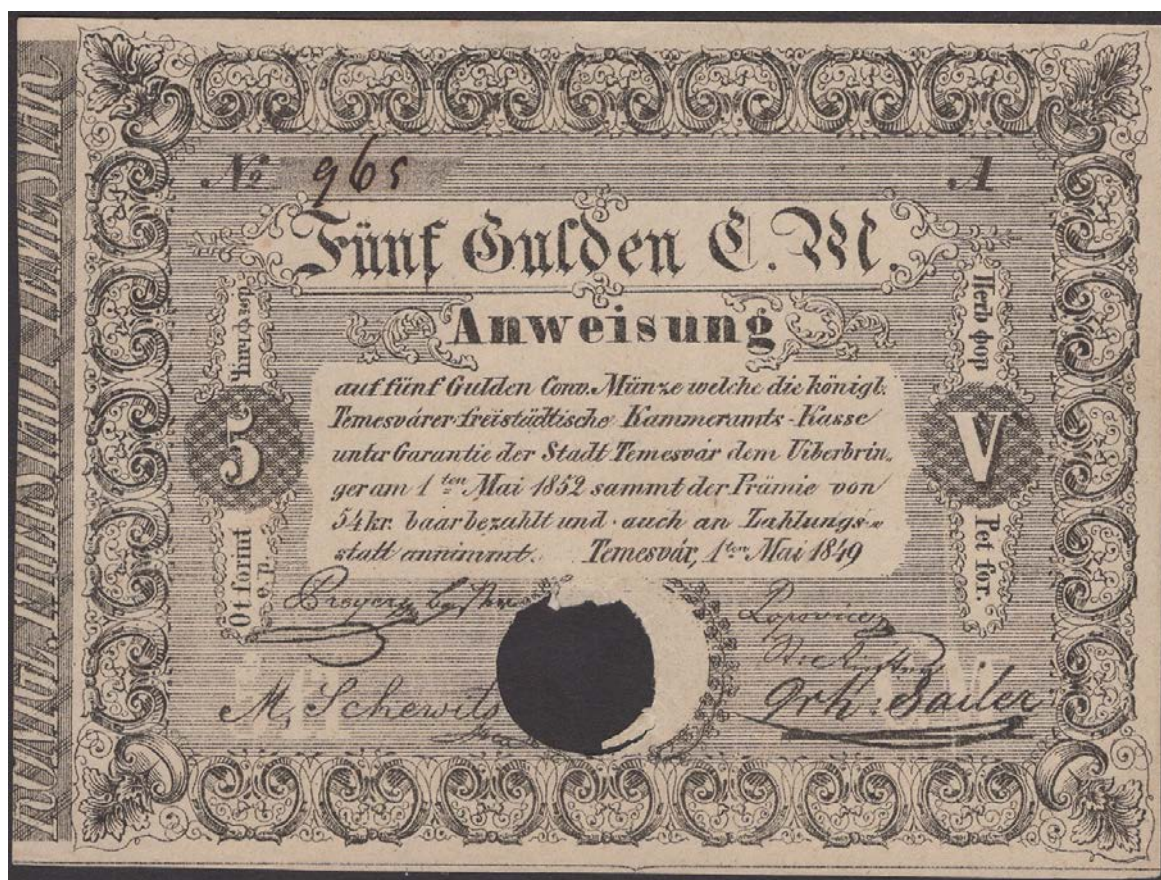 KÖNIGL. FREIE STADT TEMESVÁR
№ 965 A
Fünf Gulden C. M.
Anweisung
auf fünf Gulden Conv. Münze welche die königl.
Temesvárer freistädtische Kammeramts-Kasse
unter Garantie der Stadt Temesvár dem Uiberbrin-
ger am 1ten Mai 1852 sammt der Prämie von
54 kr. baar bezahlt und auch an Zahlungs-
statt annimmt. Temesvár, 1ten Mai 1849
5
Öt forint
e. p.
V
Pet for.
M. Schewits
Popovics
Sailer